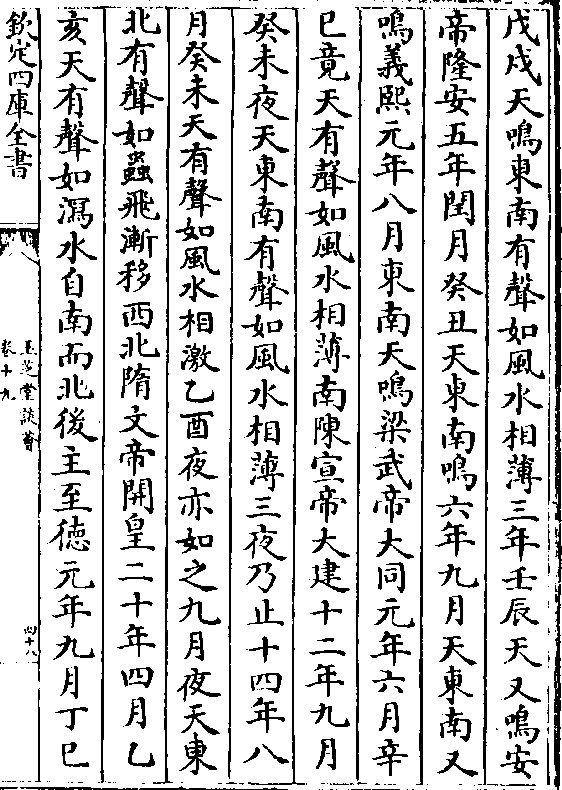 戊戌天鳴東南有聲如風水相薄三年壬辰天又鳴安
帝隆安五年閏月癸丑天東南鳴六年九月天東南又
鳴義熙元年八月東南天鳴梁武帝大同元年六月辛
巳竟天有聲如風水相薄南陳宣帝大建十二年九月
癸未夜天東南有聲如風水相薄三夜乃止十四年八
月癸未天有聲如風水相激乙酉夜亦如之九月夜天東
北有聲如蟲飛漸移西北隋文帝開皇二十年四月乙
亥天有聲如瀉水自南而北後主至德元年九月丁巳
欽定四庫全書
玉芝堂談薈
卷十九
四十八